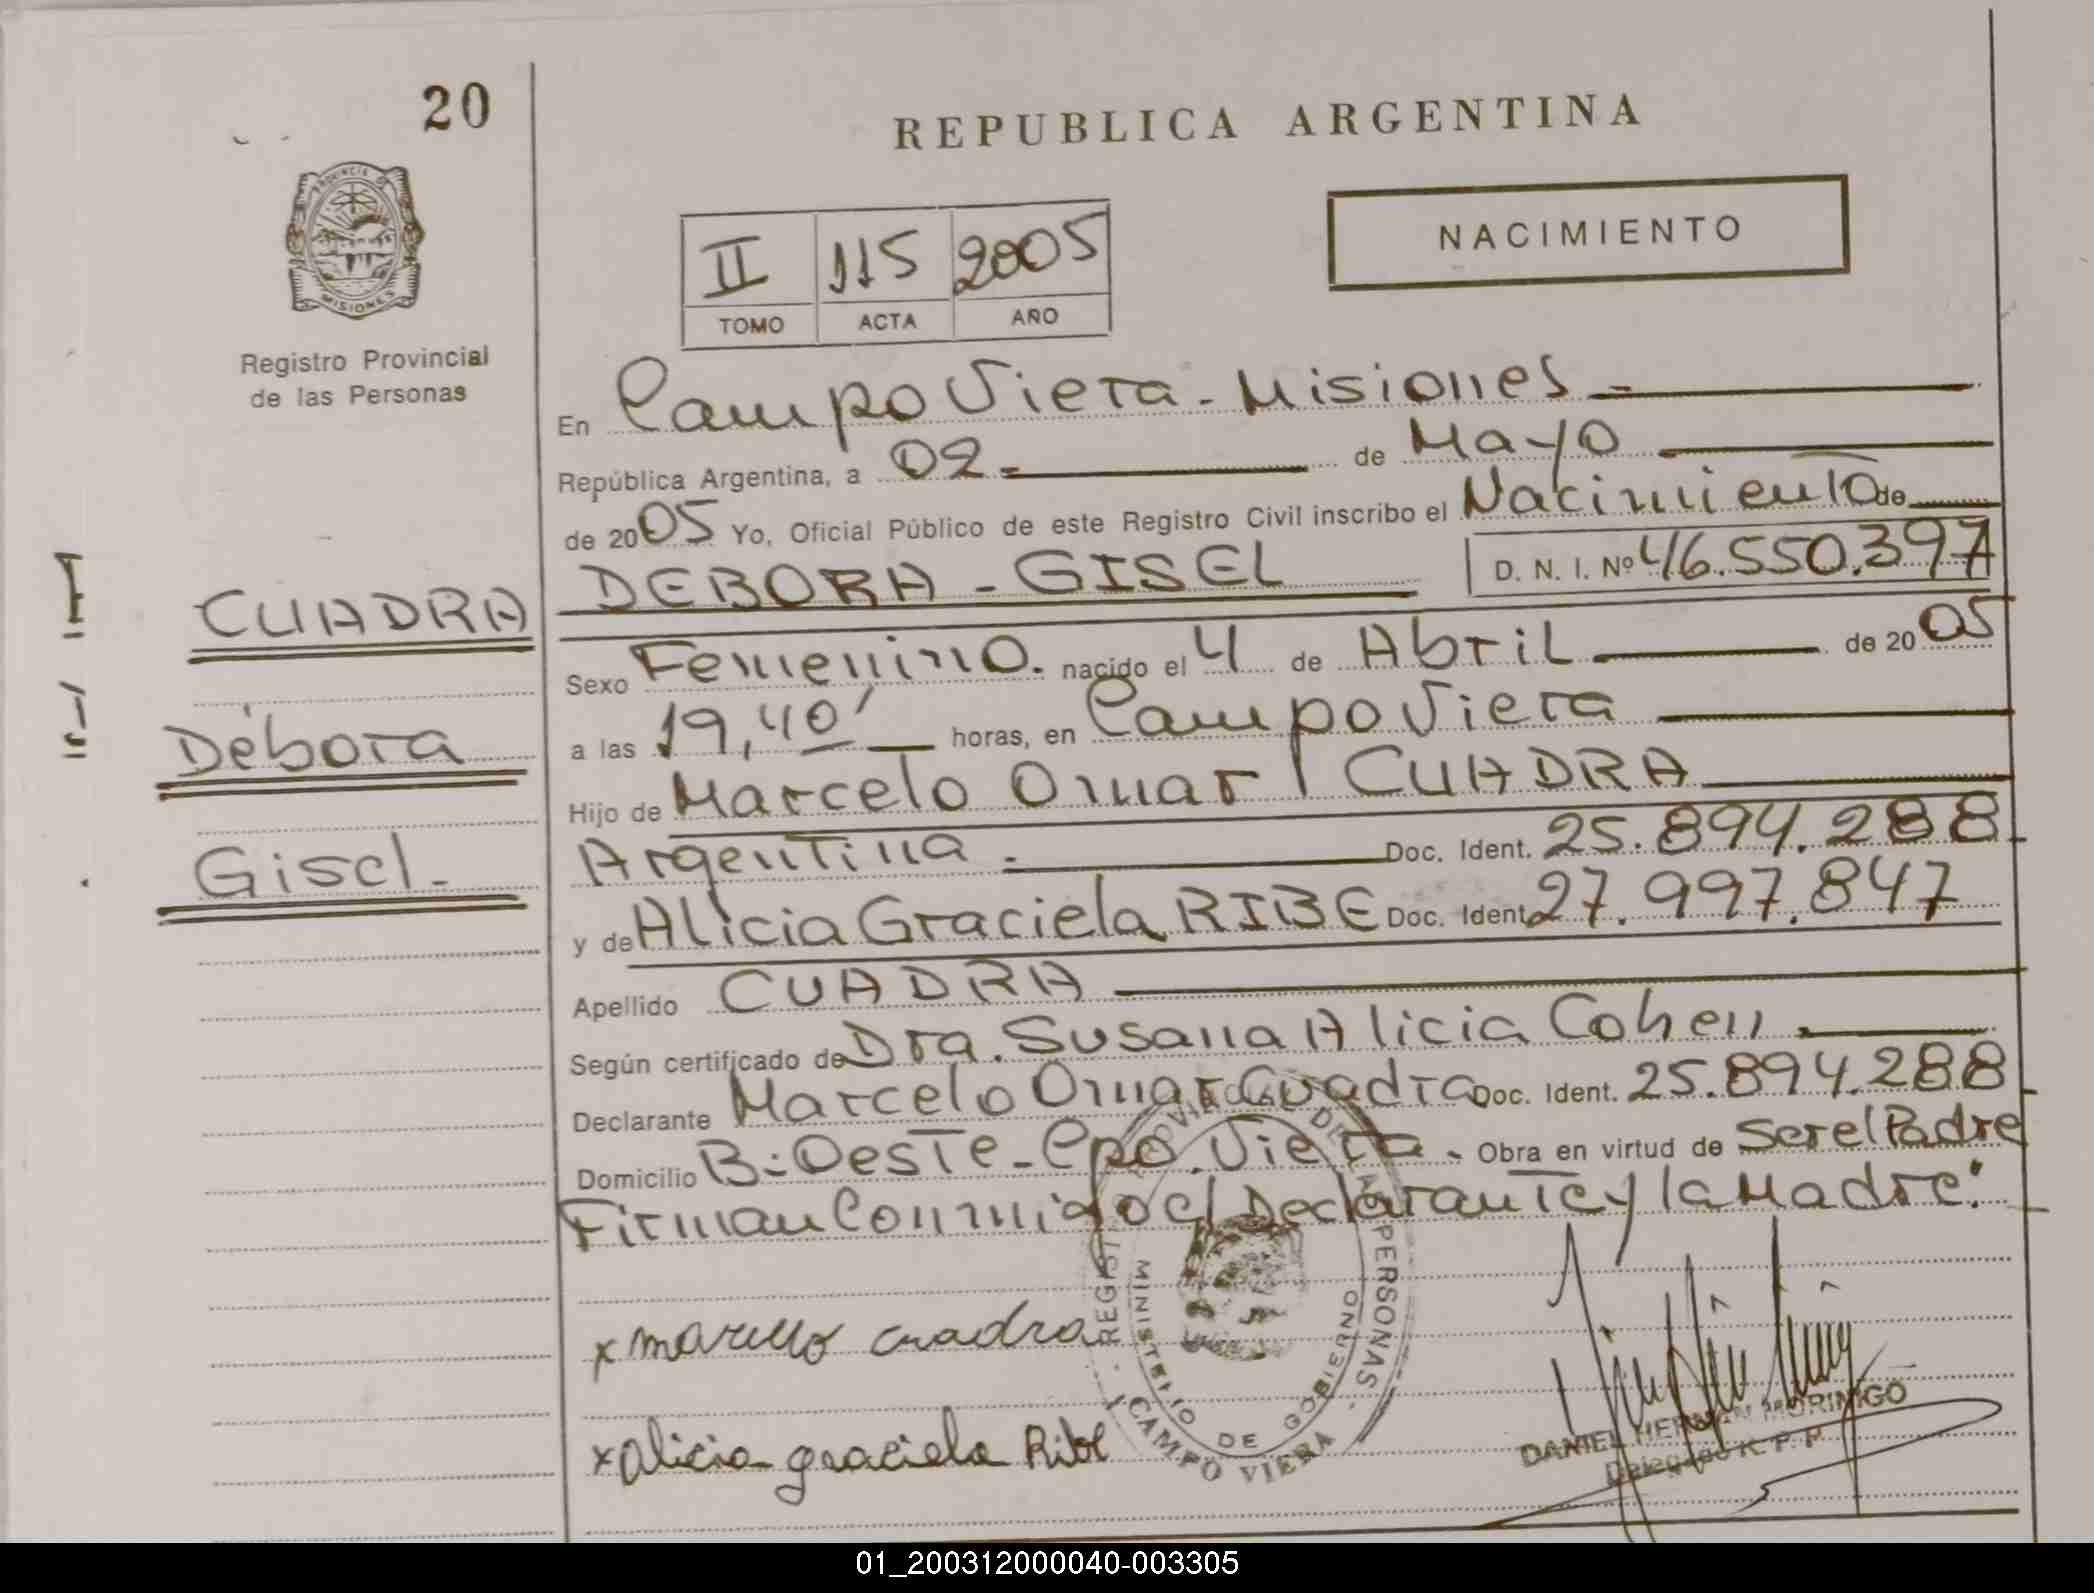 20
REPUBLICA ARGENTINA
PROVINCIA DE
MISIONES
NACIMIENTO
II 115 2005
TOMO ACTA AÑO
Registro Provincial
de las Personas
En Campo Viera - Misiones -
República Argentina, a 02 - de Mayo
de 2005 Yo, Oficial Público de este Registro Civil inscribo el Nacimiento de
DEBORA - GISEL D. N. I. Nº 46.550.397
CUADRA
Débora
Gisel -
Sexo Femenino. nacido el 4 de Abril de 2005
a las 19,40' horas, en Campo Viera
Hijo de Marcelo Omar CUADRA
Argentina - Doc. Ident. 25.894.288
y de Alicia Graciela RIBE Doc. Ident. 27.997.847
Apellido CUADRA
Según certificado de Dra. Susana Alicia Cohen -
Declarante Marcelo Omar Cuadra Doc. Ident. 25.894.288
Domicilio B: Oeste - Cpo. Viera - Obra en virtud de Ser el Padre
Firman Conmigo el Declarante y la Madre:
x marcelo cuadra
x alicia graciela Ribe
MINISTERIO DE GOBIERNO
CAMPO VIERA
DANIEL HERNAN MORINIGO
Delegado R. P. P.
01_200312000040-003305